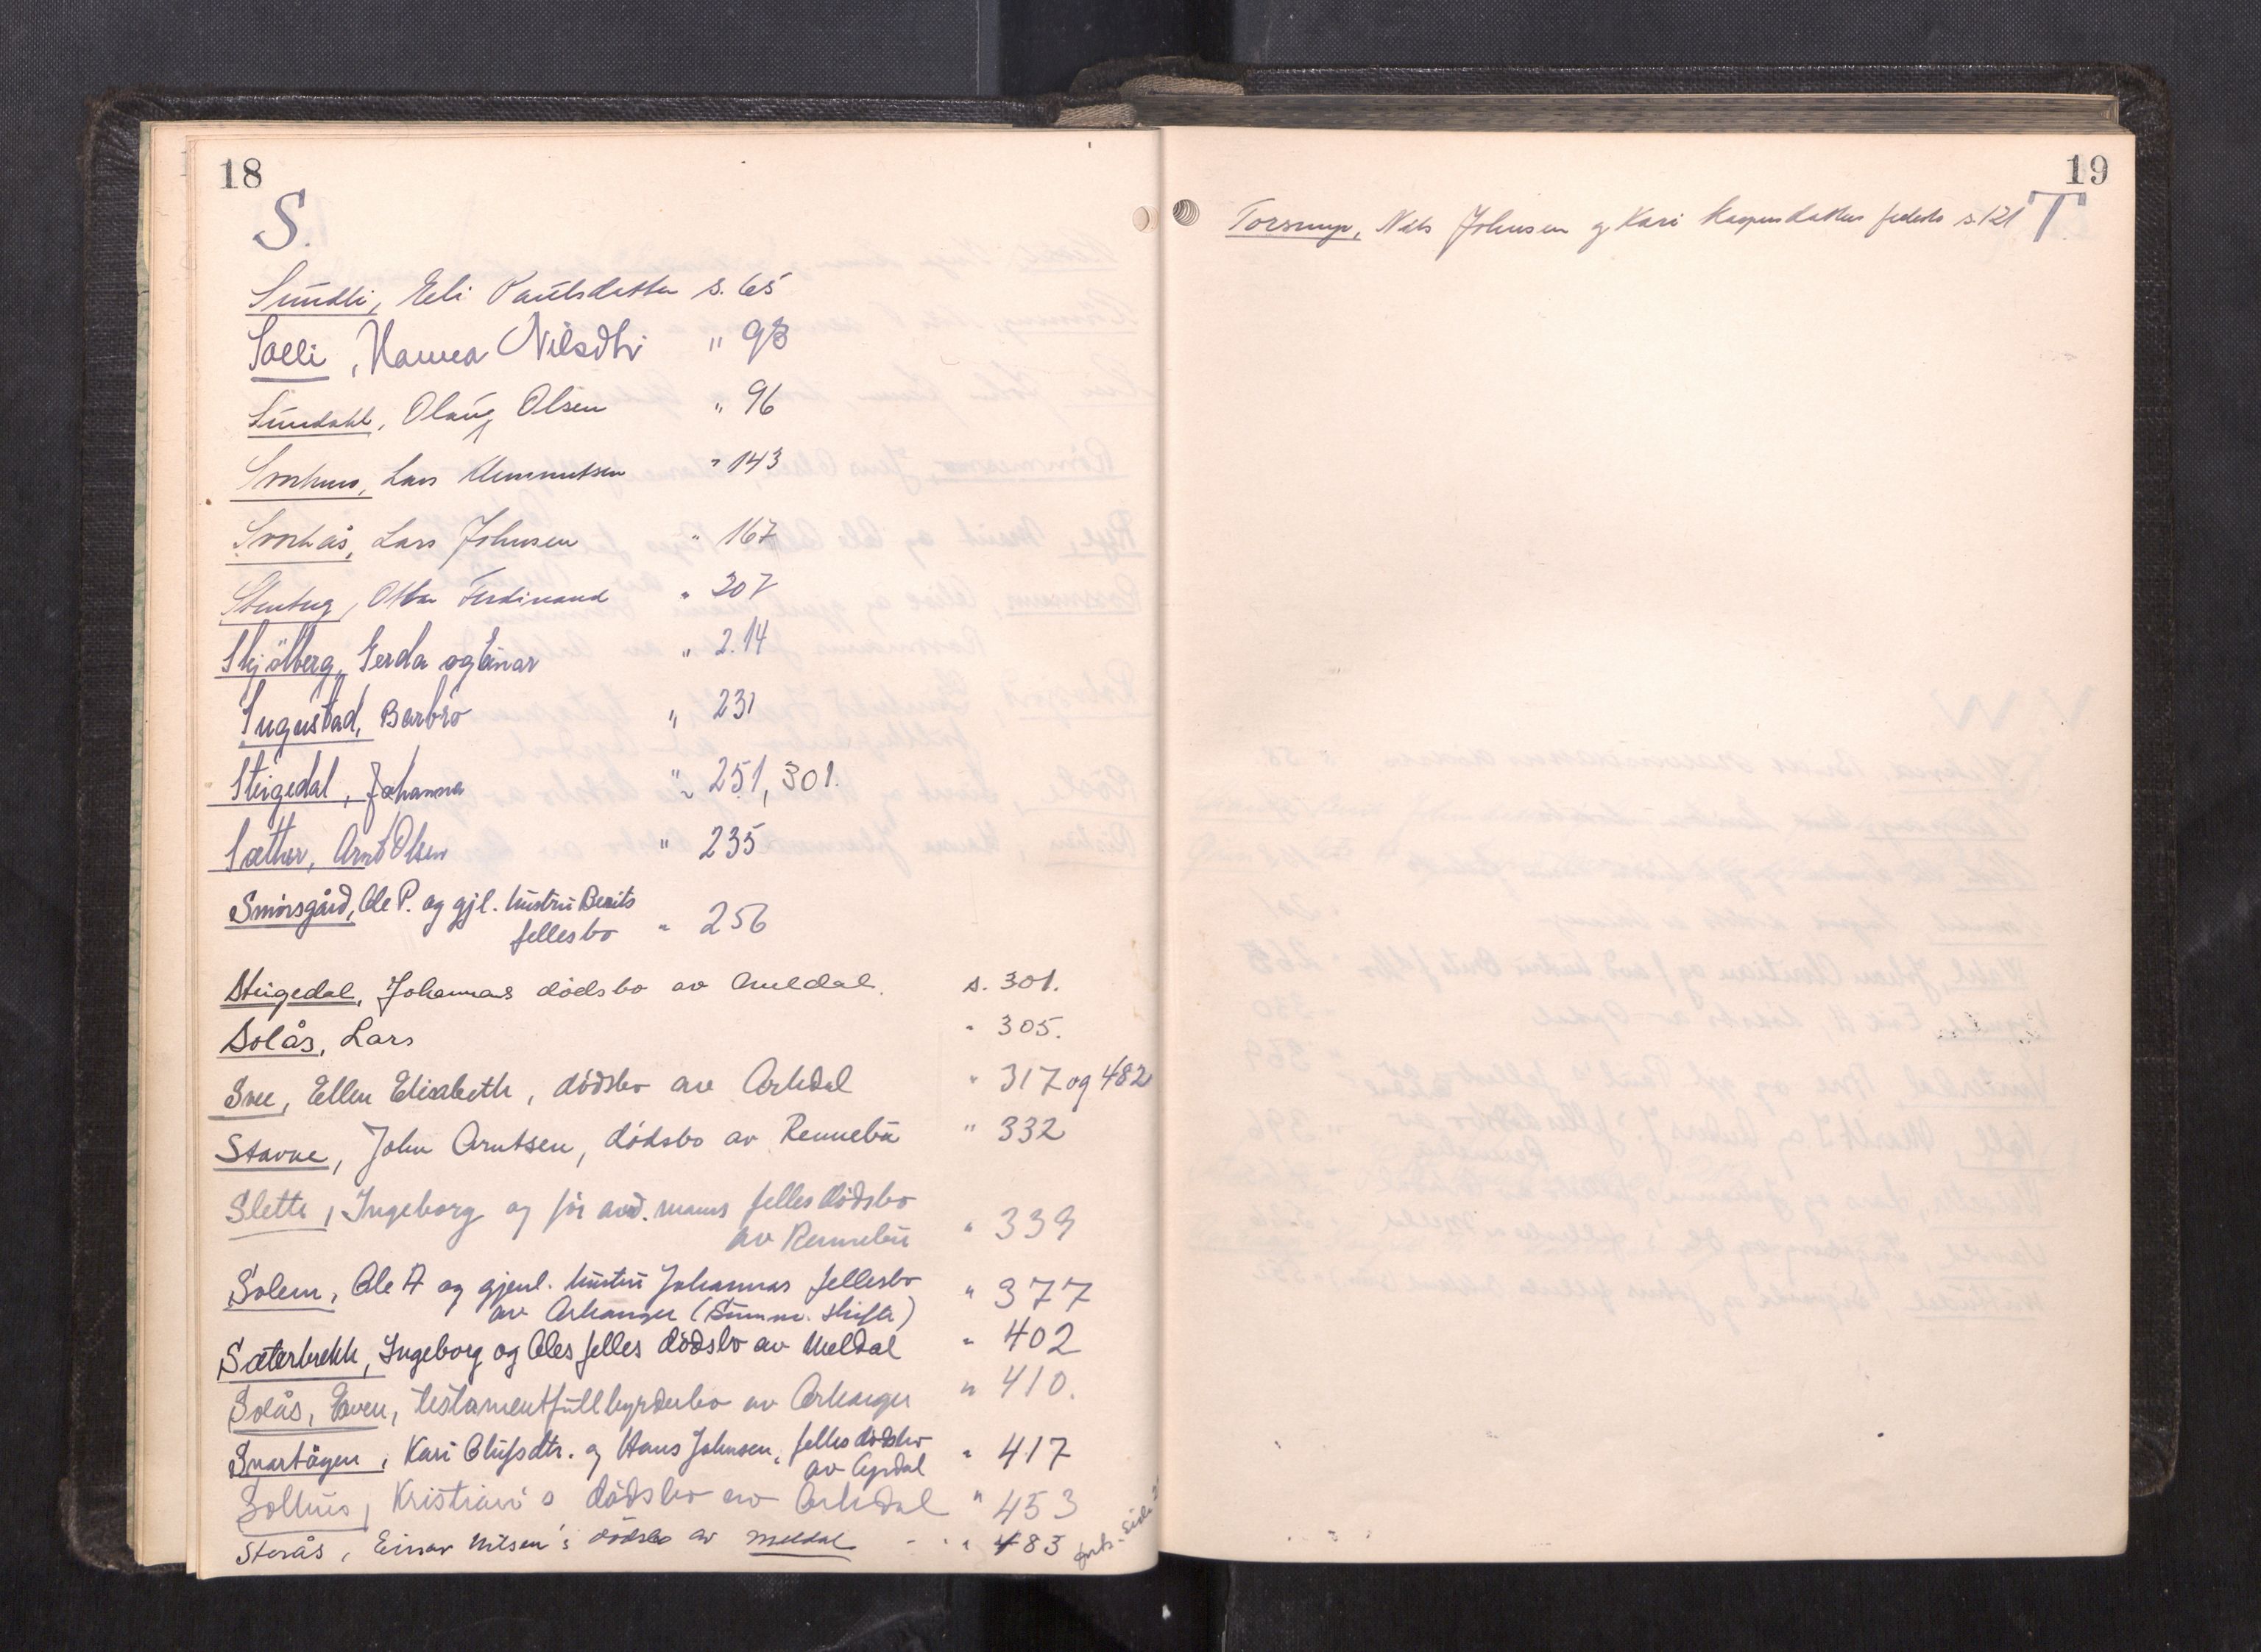 18
S.
Sundli, Eli Paulsdatter s. 65
Solli, Hanna Nilsdtr " 93
Sundahl, Olaug Olsen " 96
Lars " 143
Storås, Lars Johnsen " 167
Otto Ferdinand " 207
Skjölberg, Gerda og Einar " 214
Singustad, Barbro " 231
Steigedal, Johanna " 251, 301.
Sæther, Arnt Olsen " 235
Smörsgård, Ole P. og gjl. hustru Berits
fellesbo " 256
Steigedal, Johannas dödsbo av Meldal. s. 301.
Solås, Lars " 305.
Sve, Ellen Elisabeth, dödsbo av Orkdal " 317 og 482
Stavne, John Arntsen, dödsbo av Rennebu " 332
Slette, Ingeborg og för avd. manns felles dödsbo
av Rennebu " 339
Solem, Ole A og gjenl. hustru Johannas fellesbo " 377
av Orkanger (Summ. skifte)
Sæterbrekk, Ingeborg og Oles felles dödsbo av Meldal " 402
Solås, Even, testamentfullbyrderbo av Orkanger " 410.
Svartögen, Kari Olufsdtr. og Hans Johnsen, felles dödsbo " 417
av Opdal
Solhus, Kristian's dödsbo av Orkdal " 453
Storås, Einar Nilsen's dödsbo av Meldal - " 483 forts. side
19
T
Torsmyr, Nils Johnsen og Kari Kaspersdatter s. 121